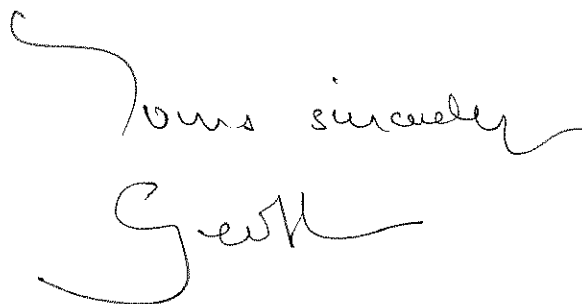 Yours sincerely
Geoff